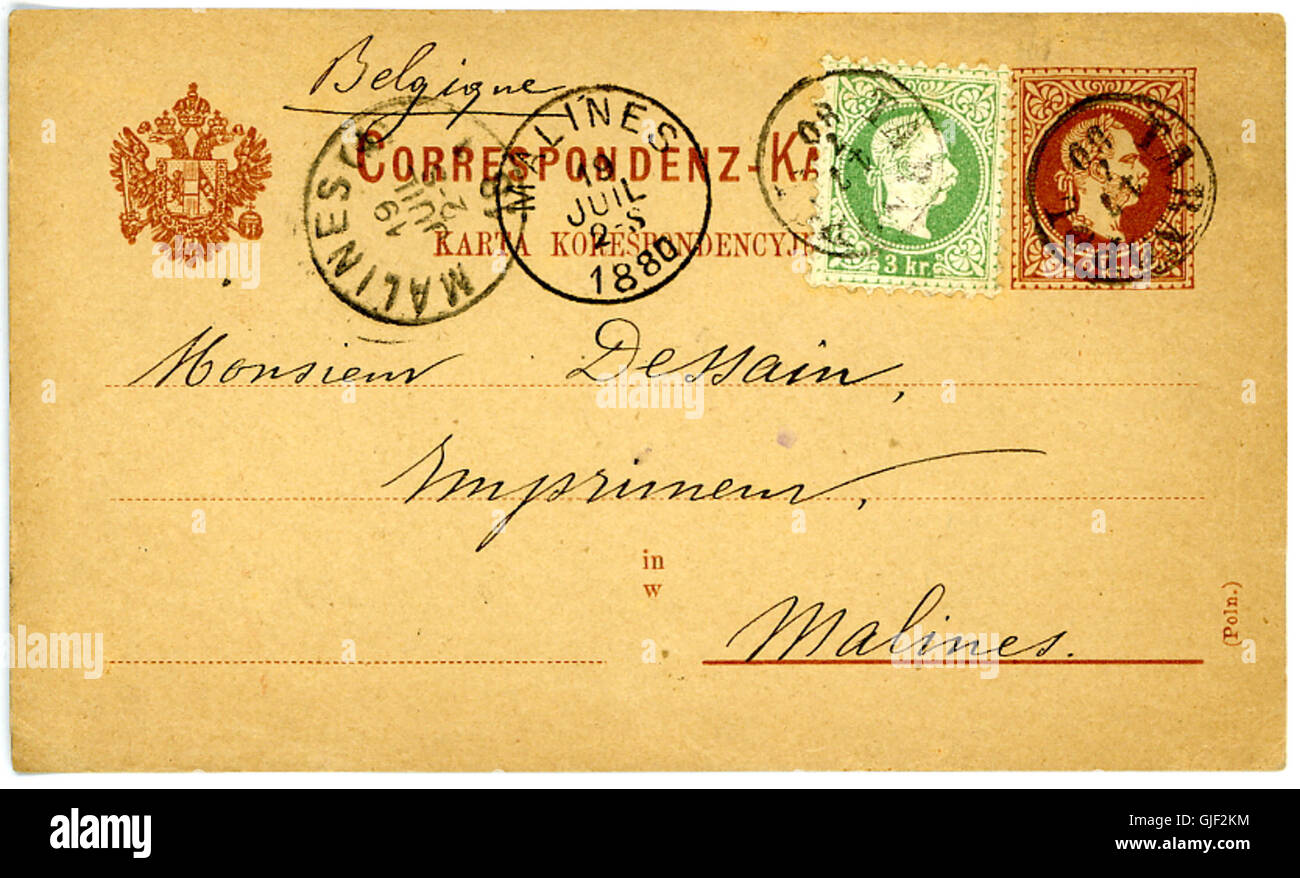 Belgique
CORRESPONDENZ-KA
KARTA KORESPONDENCYJN
MALINES
19
JUIL
2-S
1880
MALINES
19
JUIL
2-S
MALINES
3 kr.
Monsieur Dessain,
Imprimeur,
in
w
Malines.
(Poln.)
alamy
alamy stock photo
GJF2KM
www.alamy.com